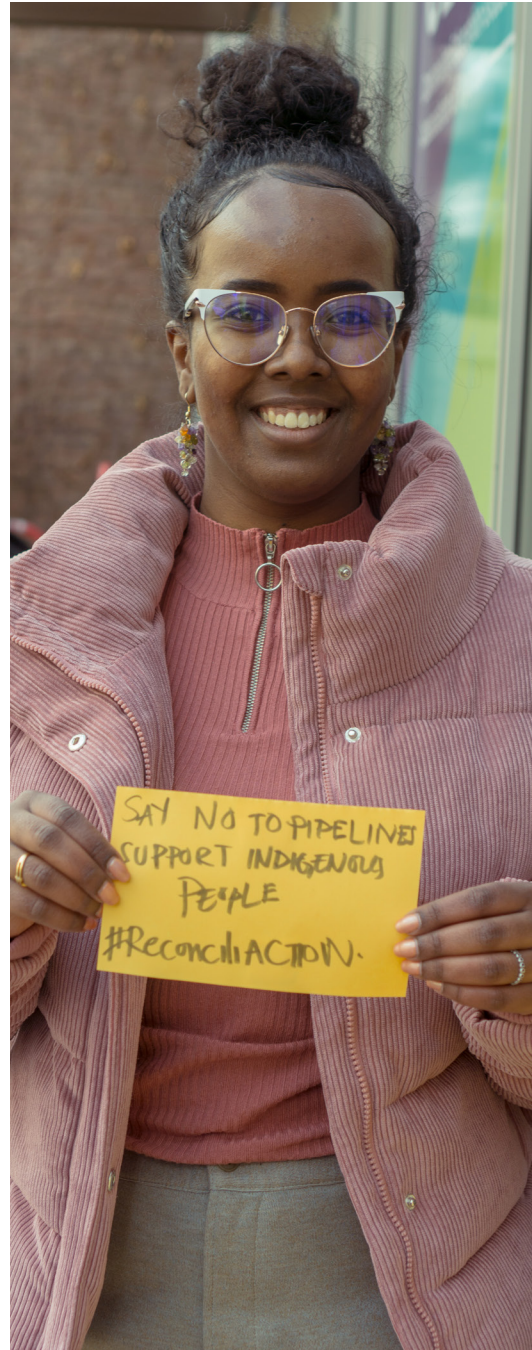 SAY NO TO PIPELINES
SUPPORT INDIGENOUS
PEOPLE
#ReconciliACTION.